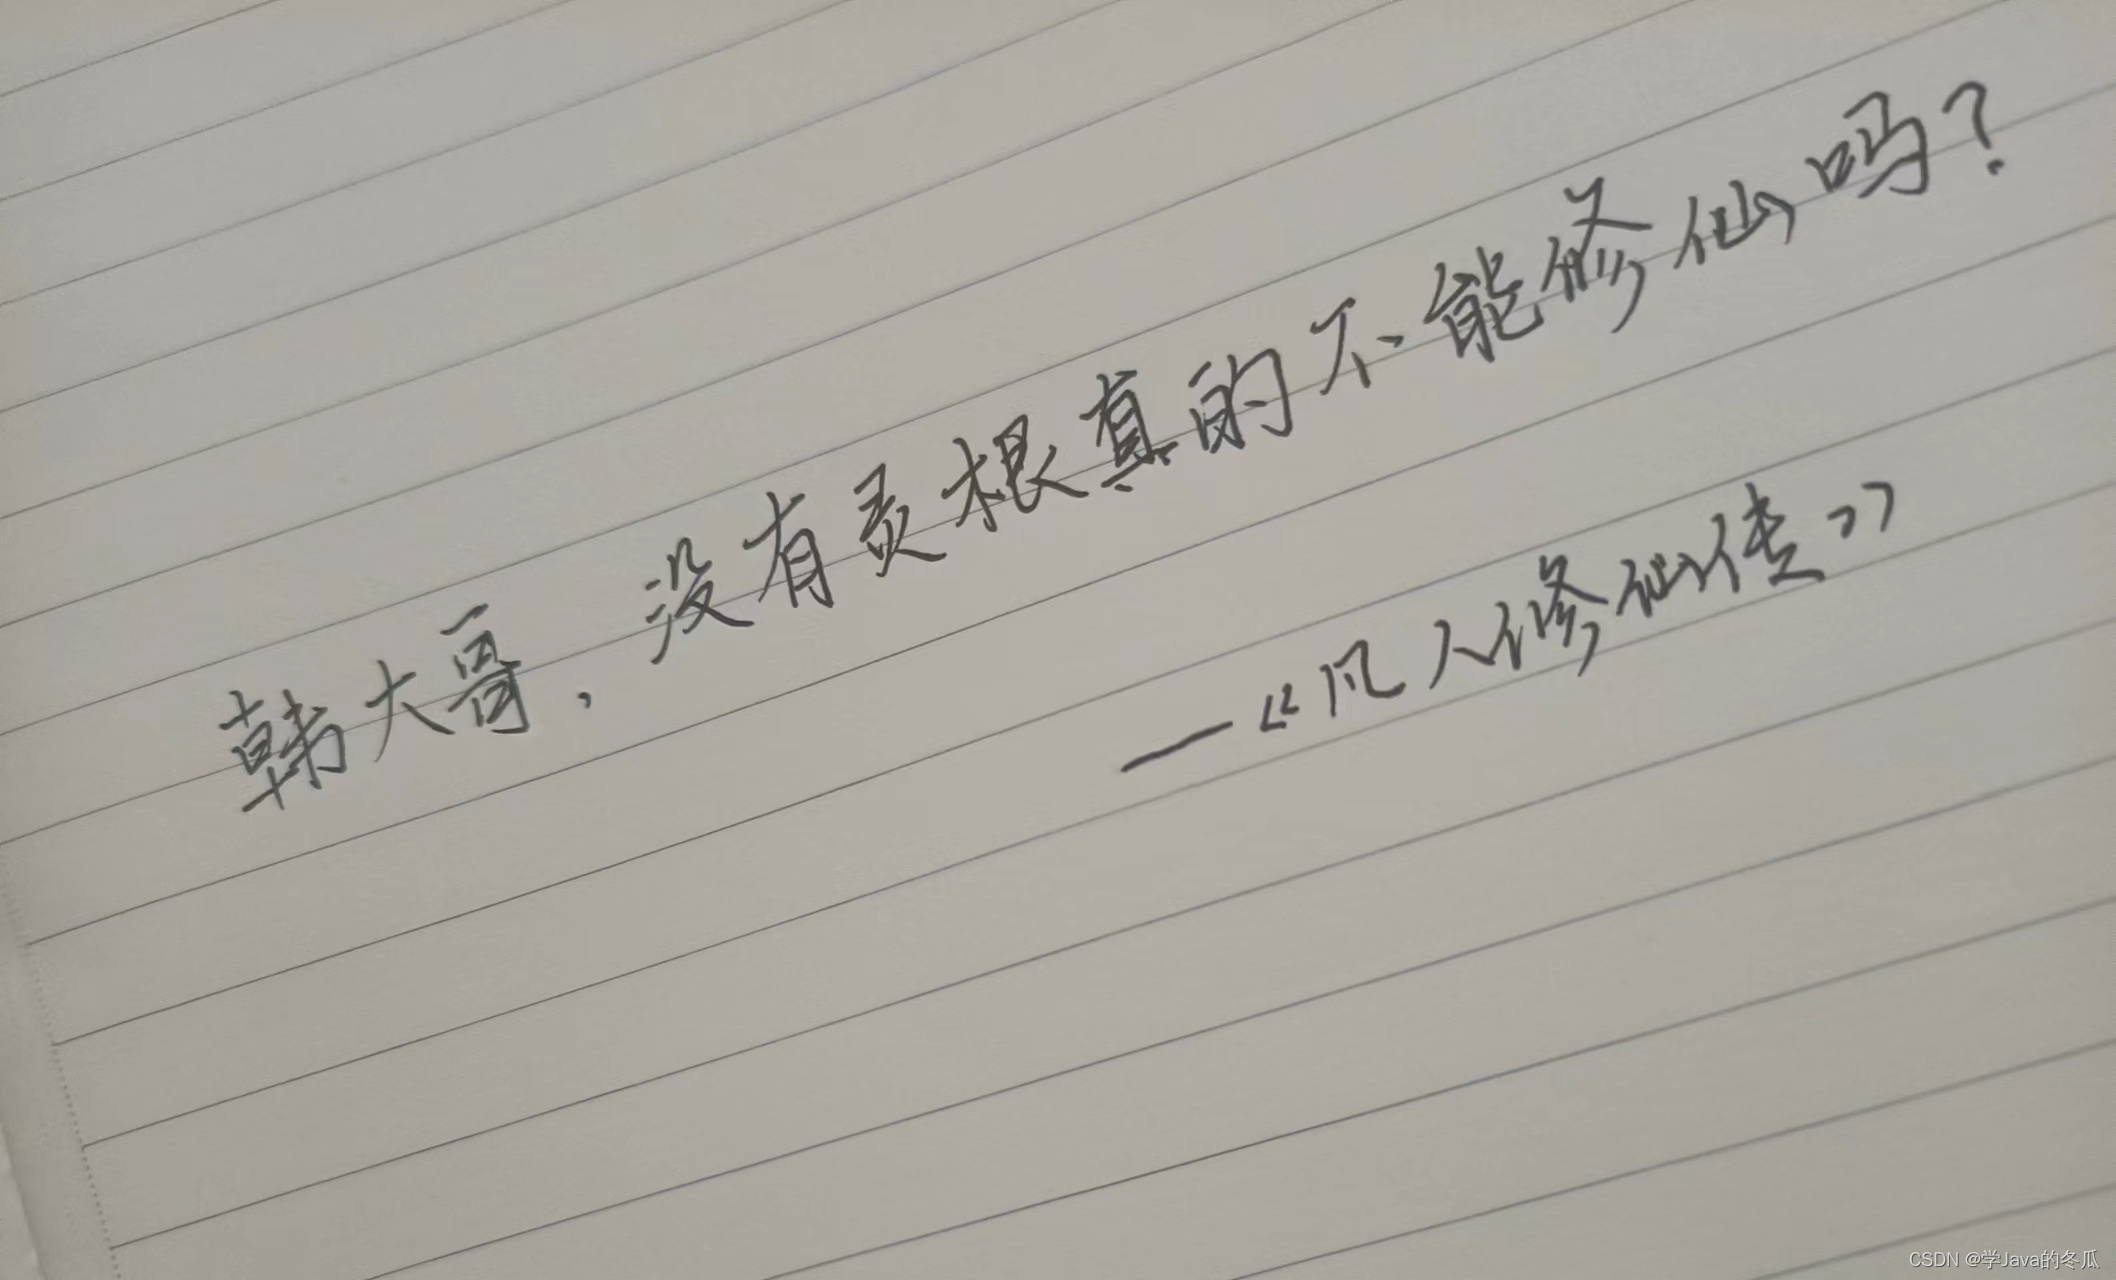 韩大哥，没有灵根真的不能修仙吗？
—《凡人修仙传》
CSDN @学Java的冬瓜